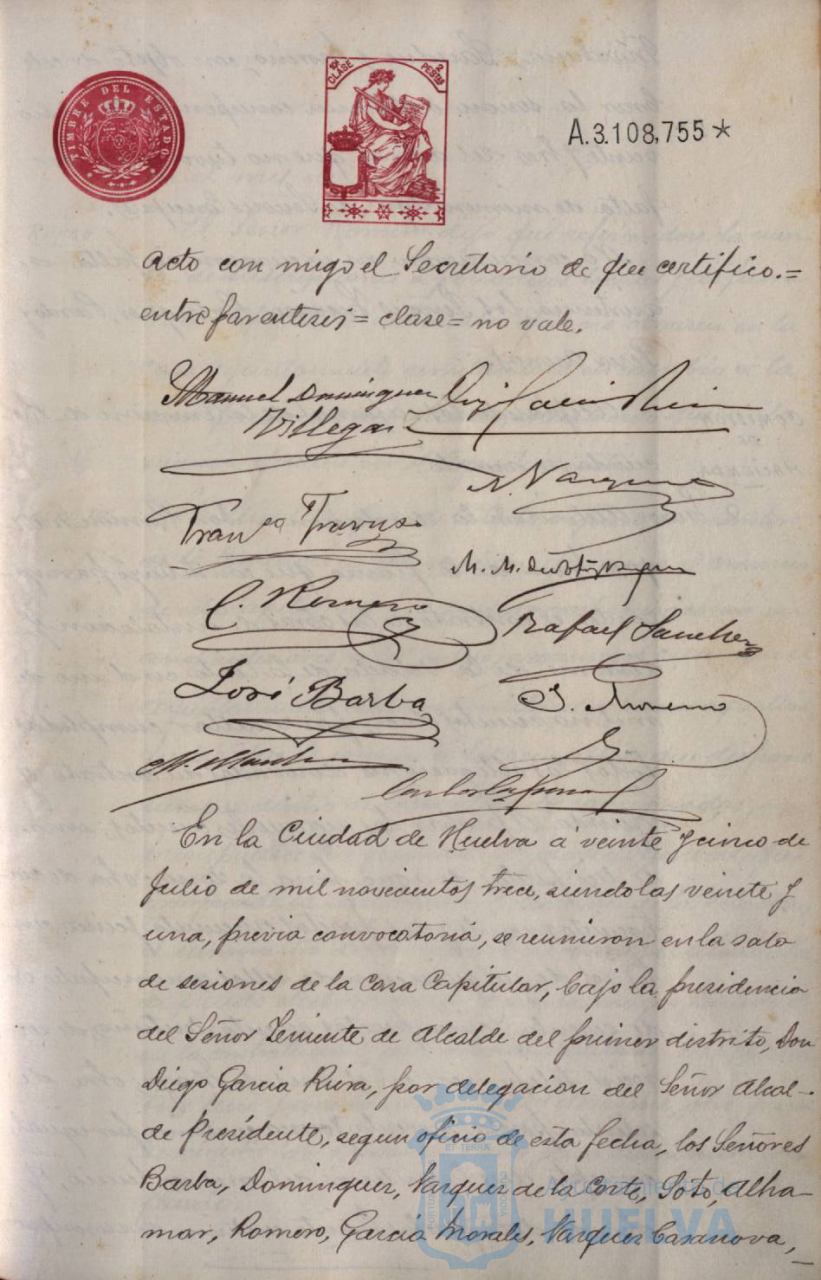 TIMBRE DEL ESTADO
10ª CLASE 2 PESTAS
A.3.108,755*
acto con migo el Secretario de que certifico.=
entre parentesis = clase = no vale.
Manuel Dominguez
Villegas
A. Vazquez
Franco Travuso
M. M.
C. Romero
Rafael Sanchez
José Barba
J. Moreno
M.
En la Ciudad de Huelva á veinte y cinco de
Julio de mil novecientos trece, siendo las veinte y
una, previa convocatoria, se reunieron en la sala
de sesiones de la Casa Capitular, bajo la presidencia
del Señor Teniente de Alcalde del primer distrito, Don
Diego Garcia Riera, por delegacion del Señor Alcal-
de Presidente, segun oficio de esta fecha, los Señores
Barba, Dominguez, Vazquez de la Corte, Soto, Alha-
mar, Romero, Garcia Morales, Vazquez Casanova,
Ayuntamiento de
HUELVA